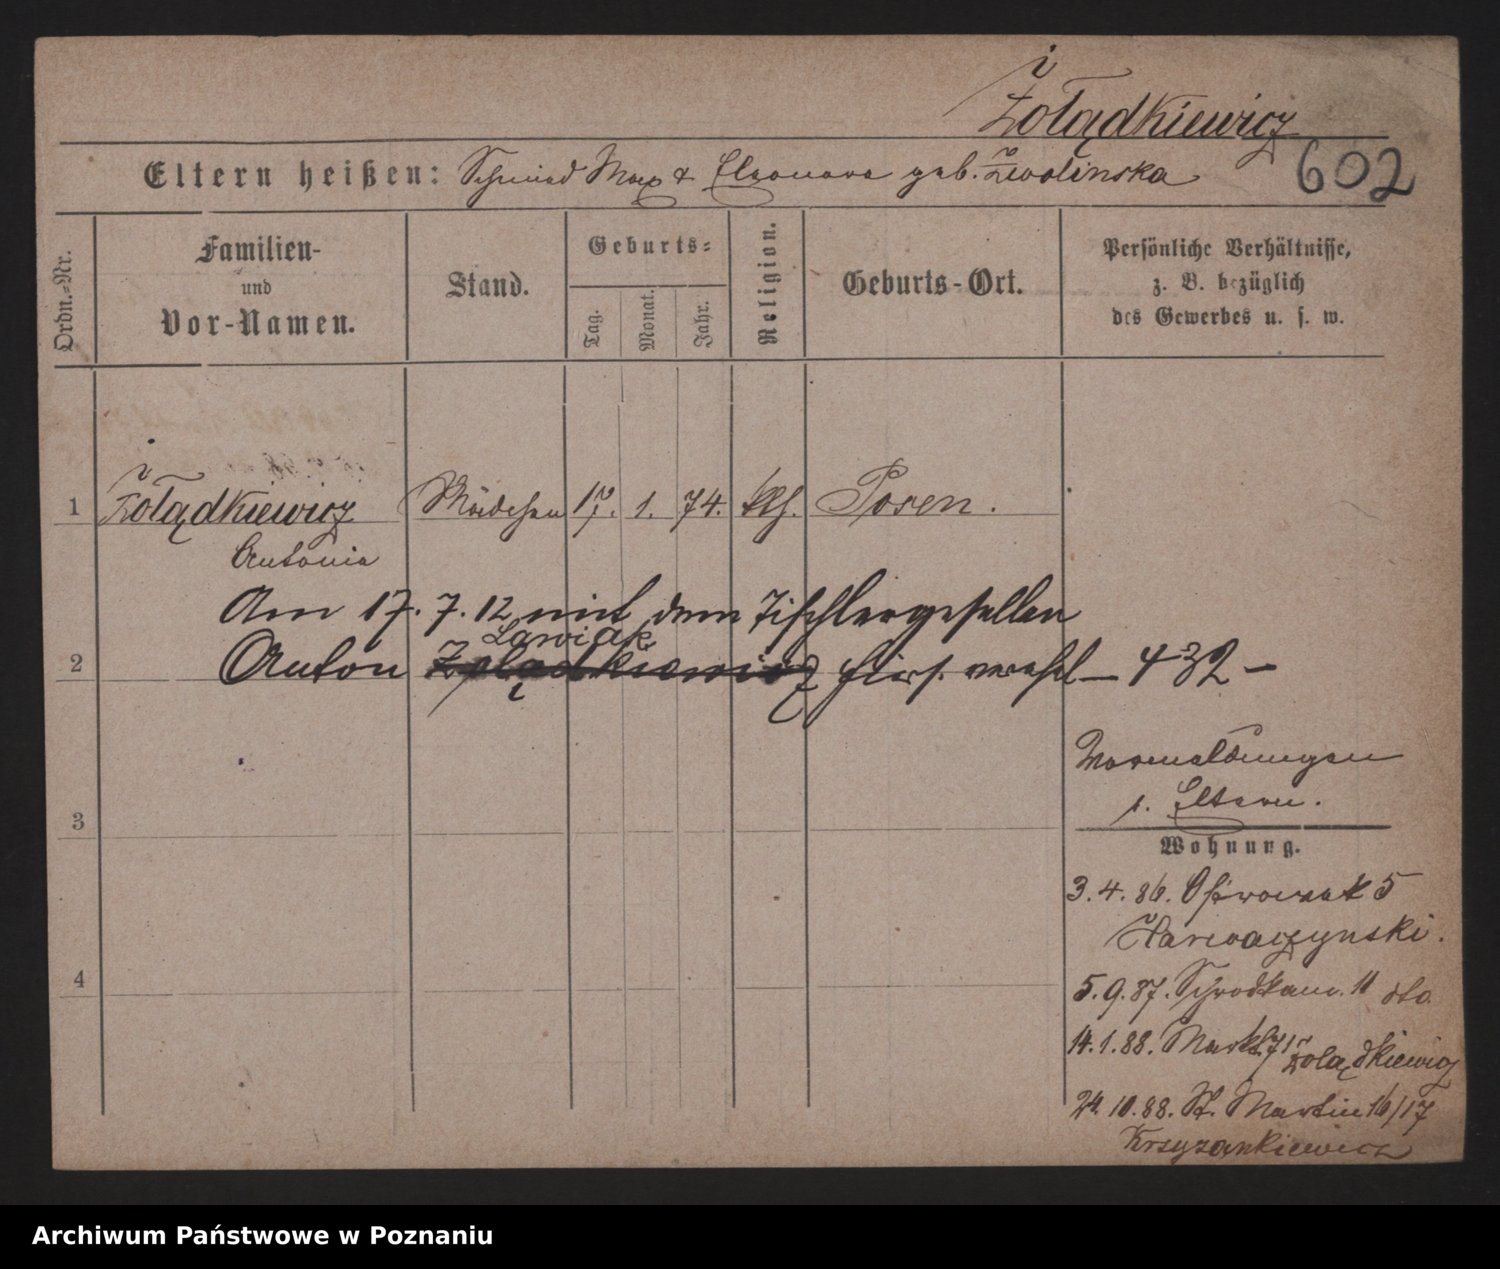 Żołądkiewicz
602
Eltern heißen: Schmied Max & Eleonora geb. Zwolinska
Ordn.-Nr.
Familien-
und
Vor-Namen.
Stand.
Geburts-
Tag.
Monat.
Jahr.
Religion.
Geburts-Ort.
Persönliche Verhältnisse,
z. B. bezüglich
des Gewerbes u. s. w.
1 Żołądkiewicz Mädchen 17. 1. 74. kth. Posen.
Antonia
Am 17. 7. 12 mit dem Tischlergesellen
Lawiak
2 Anton Żołądkiewicz hier verehel. — 432 —
Vormeldungen
s. Eltern.
3
Wohnung.
3. 4. 86. Ostrowek 5
4
5. 9. 87. Schrodkam. 11 dto.
14. 1. 88. Markt 71 Żołądkiewicz
24. 10. 88. St. Martin 16/17
Krzyzankiewicz
Archiwum Państwowe w Poznaniu